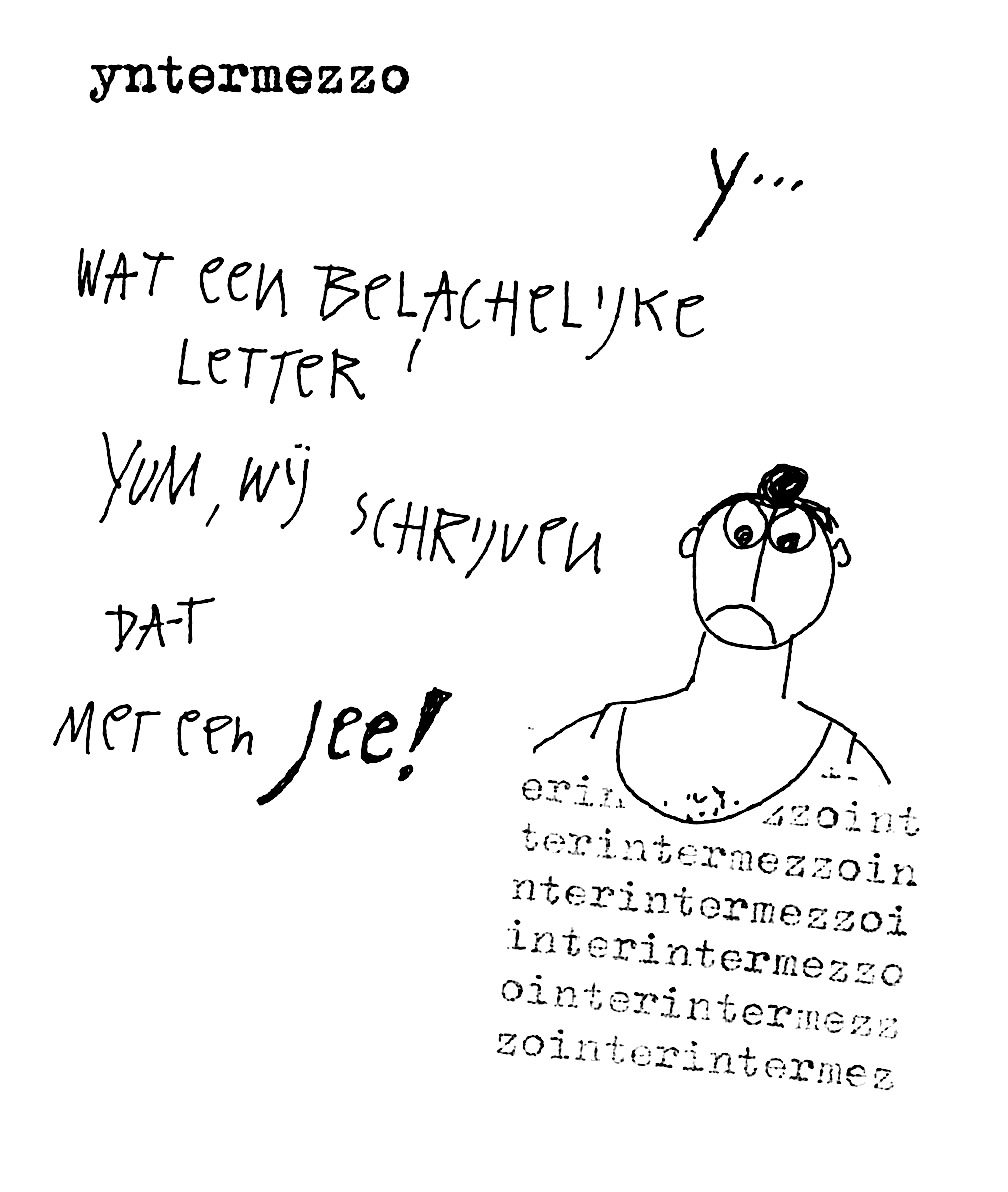 yntermezzo
y...
WAT een BeLACHeLIJKe
LeTTeR !
YUM, WIJ SCHRIJVEN
DAT
MeT een Jee!
erin zzoint
terintermezzoin
nterintermezzoi
interintermezzo
ointerintermezz
zointerintermez